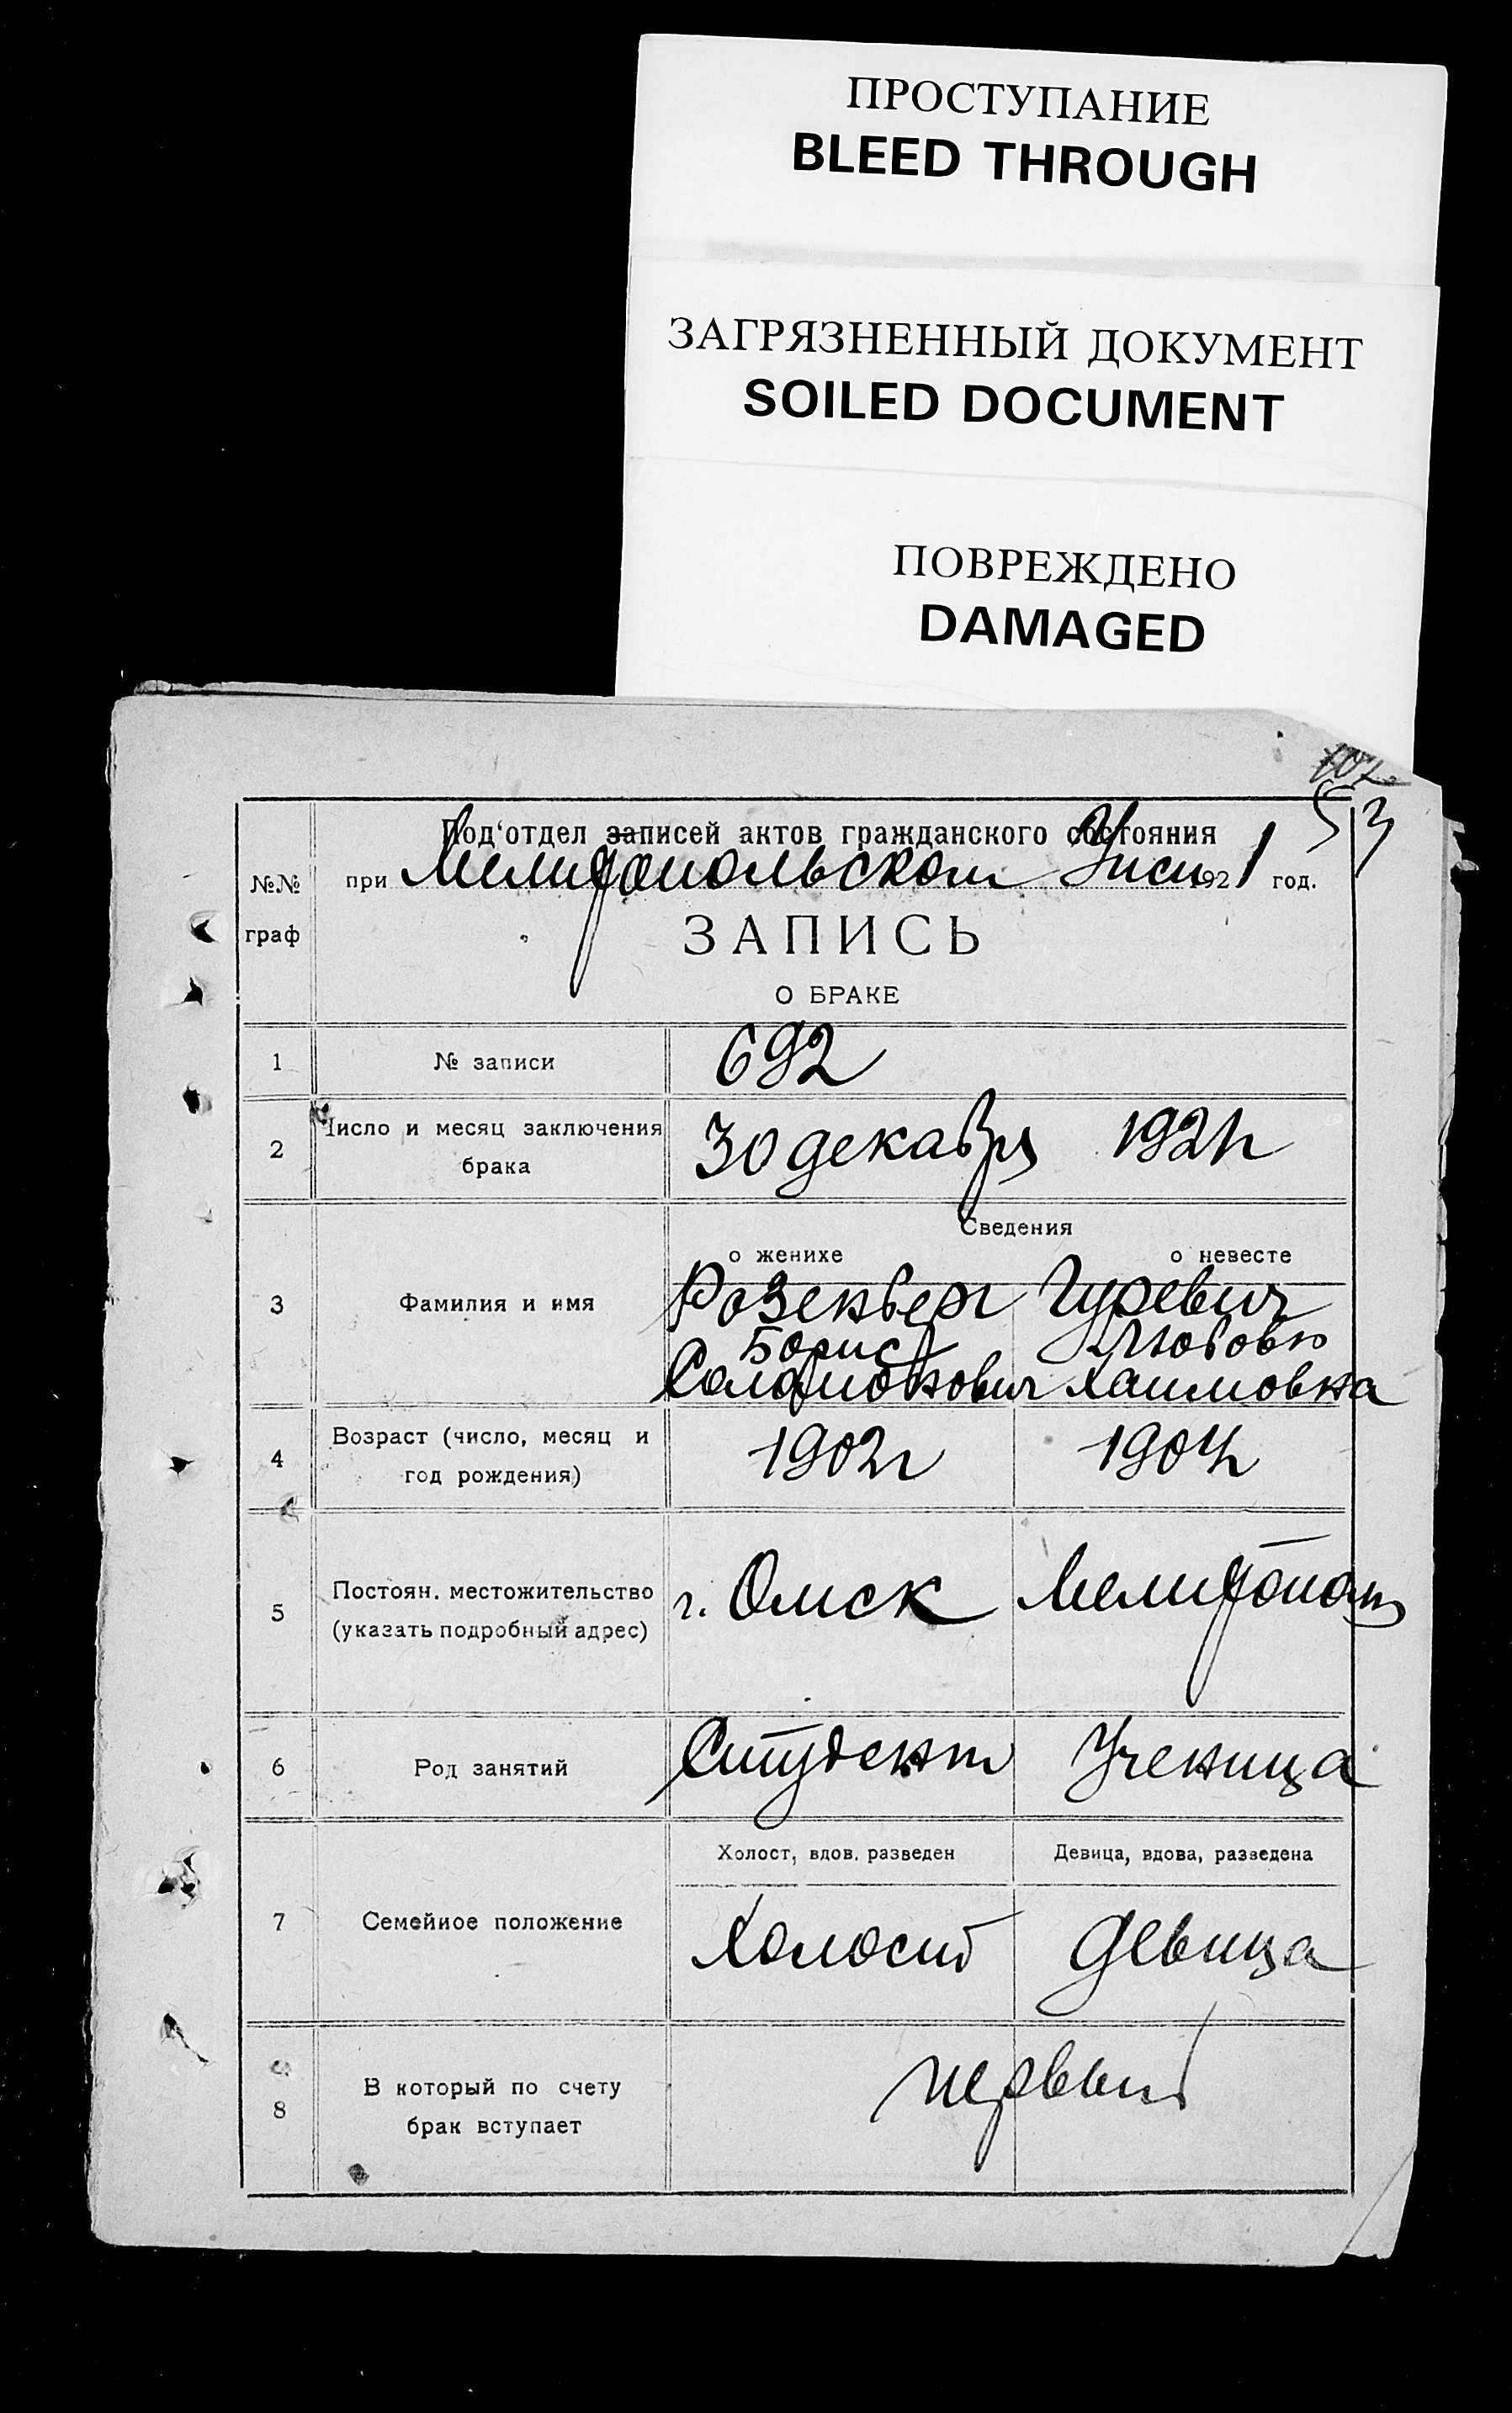 ПРОСТУПАНИЕ
BLEED THROUGH
ЗАГРЯЗНЕННЫЙ ДОКУМЕНТ
SOILED DOCUMENT
ПОВРЕЖДЕНО
DAMAGED
102
53
№№
граф
Под'отдел записей актов гражданского состояния
при Мелитопольском Уиси 1921 год.
ЗАПИСЬ
О БРАКЕ
1 № записи 692
2 Число и месяц заключения
брака
30 декабря 1921г
Сведения
о женихе о невесте
3 Фамилия и имя
Розенберг Гуревич
Борис Любовь
Соломонович Хаимовна
4 Возраст (число, месяц и
год рождения)
1902г 1904г
5 Постоян. местожительство
(указать подробный адрес)
г. Омск Мелитополь
6 Род занятий Студент Ученица
Холост, вдов. разведен Девица, вдова, разведена
7 Семейное положение
Холост девица
8 В который по счету
брак вступает
первый